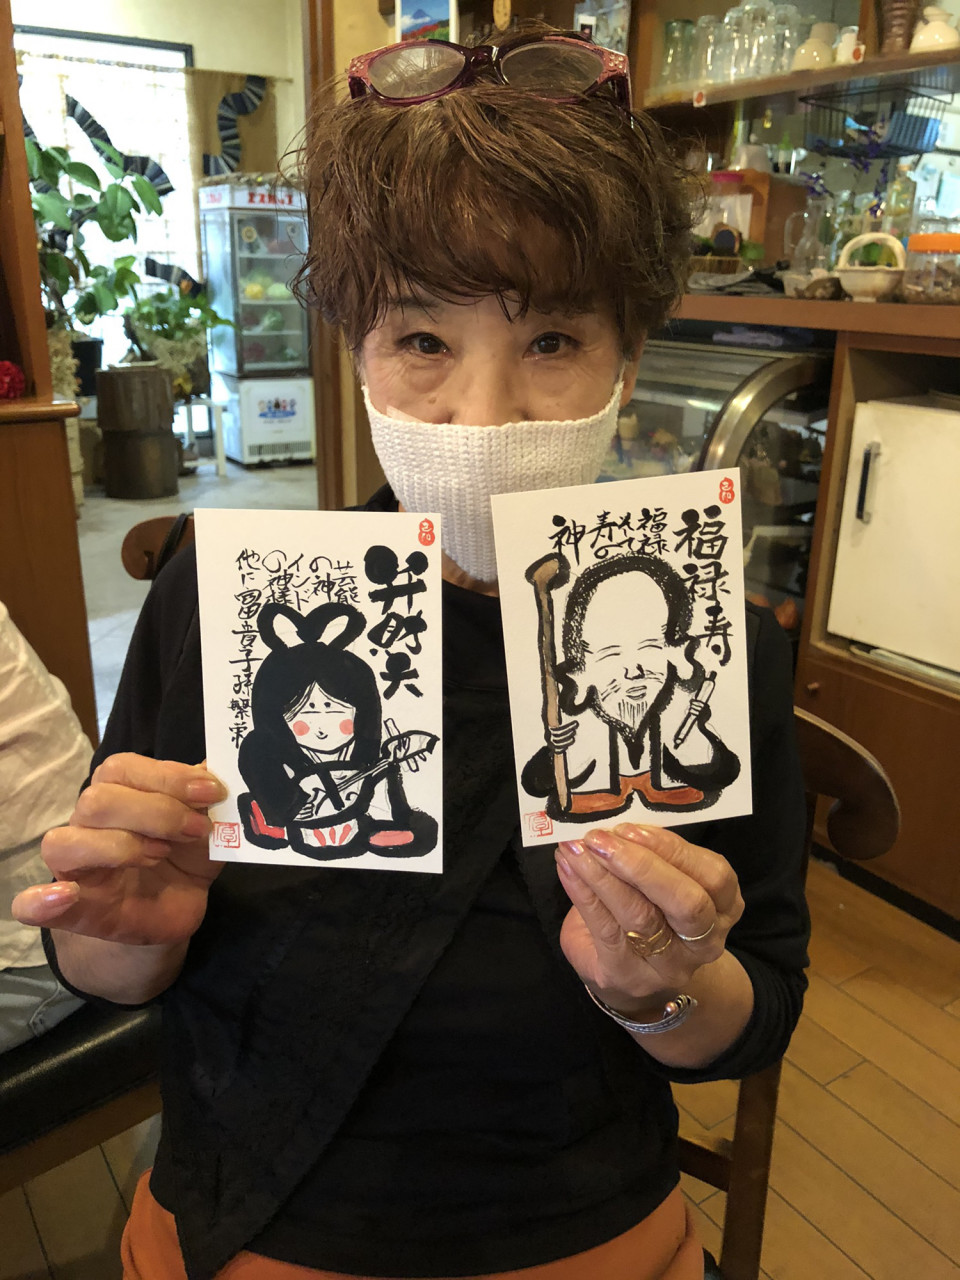 弁財天
芸能
の神
インド
の神様
他に富貴子孫繁栄
福禄寿
福禄
そして
寿の
神